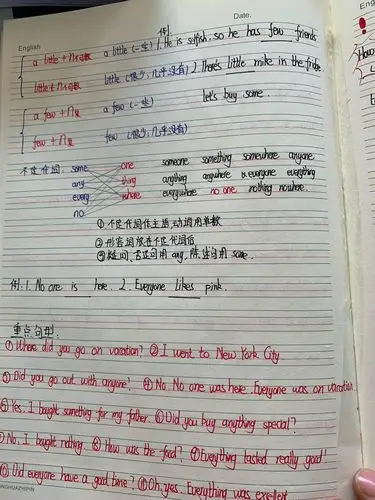 Date.
English
例
a little + n不可数 a little (一些) 1. He is selfish, so he has few friends
little + n不可数 little (很少,几乎没有) 2. There's little milk in the fridge.
a few + n复 a few (一些) let's buy some.
few + n复 few (很少,几乎没有)
不定代词: some one someone something somewhere anyone
any thing anything anywhere everyone everything
every where everywhere no one nothing nowhere.
no
① 不定代词作主语,动词用单数
② 形容词放在不定代词后
③ 疑问、否定句用 any, 陈述句用 some.
例: 1. No one is here. 2. Everyone likes pink.
重点句形:
① Where did you go on vacation? ② I went to New York City.
③ Did you go out with anyone? ④ No. No one was here. Everyone was on vacation.
⑤ Yes. I bought something for my father. ⑥ Did you buy anything special?
⑦ No, I bought nothing. ⑧ How was the food? ⑨ Everything tasted really good!
⑩ Did everyone have a good time? ⑪ Oh, yes. Everything was excellent